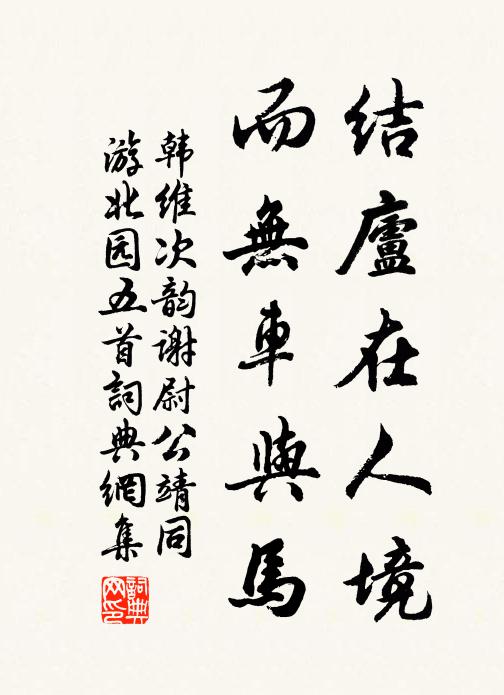 结廬在人境
而無車與馬
韩維次韵谢尉公靖同
游北园五首詞典網集
詞典网印